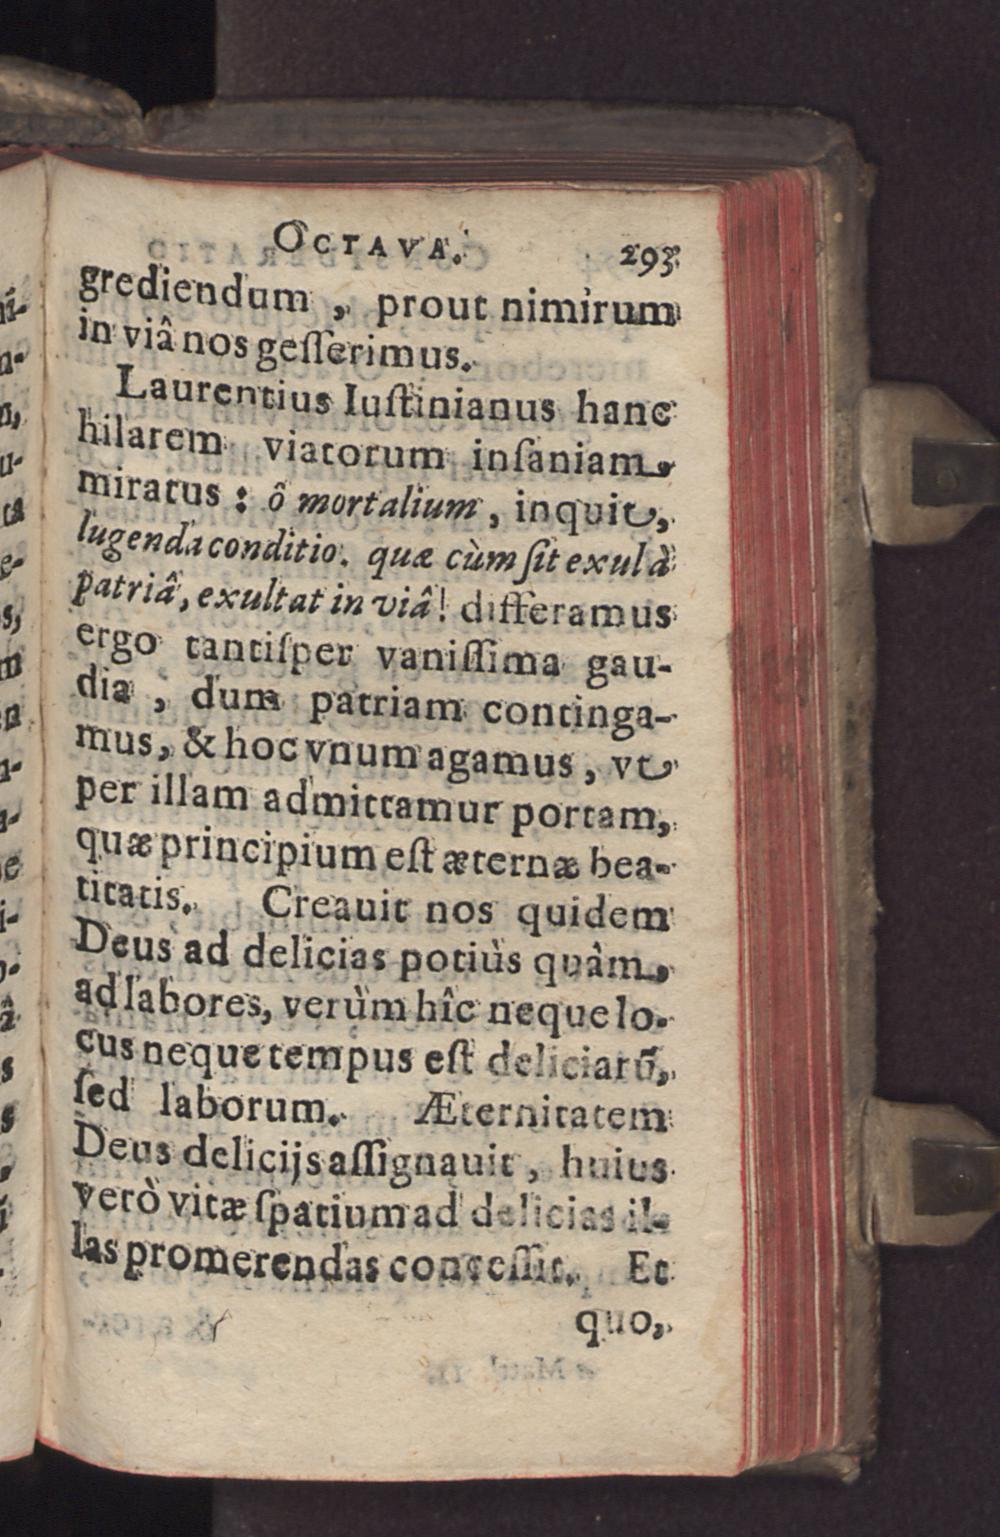 OCTAVA. 293
grediendum, prout nimirum
in viâ nos geſſerimus.
Laurentius Iuſtinianus hanc
hilarem viatorum inſaniam
miratus: ô mortalium, inquit,
lugenda conditio. quæ cùm ſit exul à
patriâ, exultat in viâ! differamus
ergo tantiſper vaniſſima gau-
dia, dum patriam continga-
mus, & hoc vnum agamus, vt
per illam admittamur portam,
quæ principium eſt æternæ bea-
titatis. Creauit nos quidem
Deus ad delicias potiùs quàm
ad labores, verùm hîc neque lo-
cus neque tempus eſt deliciarũ,
ſed laborum. Æternitatem
Deus delicijs aſſignauit, huius
verò vitæ ſpatium ad delicias il-
las promerendas conceſſit. Et
quo,